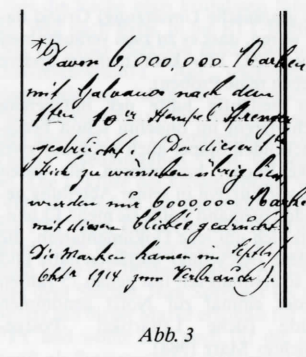 *Davon 6,000,000 Marken
mit Galvanos nach dem
1ten 10er Stempel Sprenger
gedruckt. (Da dieser 1te
Stich zu wünschen übrig liess
wurden nur 6000000 Marken
mit diesem Clichés gedruckt.
Die Marken kamen im Septbr/
Oktr 1914 zum Verbrauch).
Abb. 3